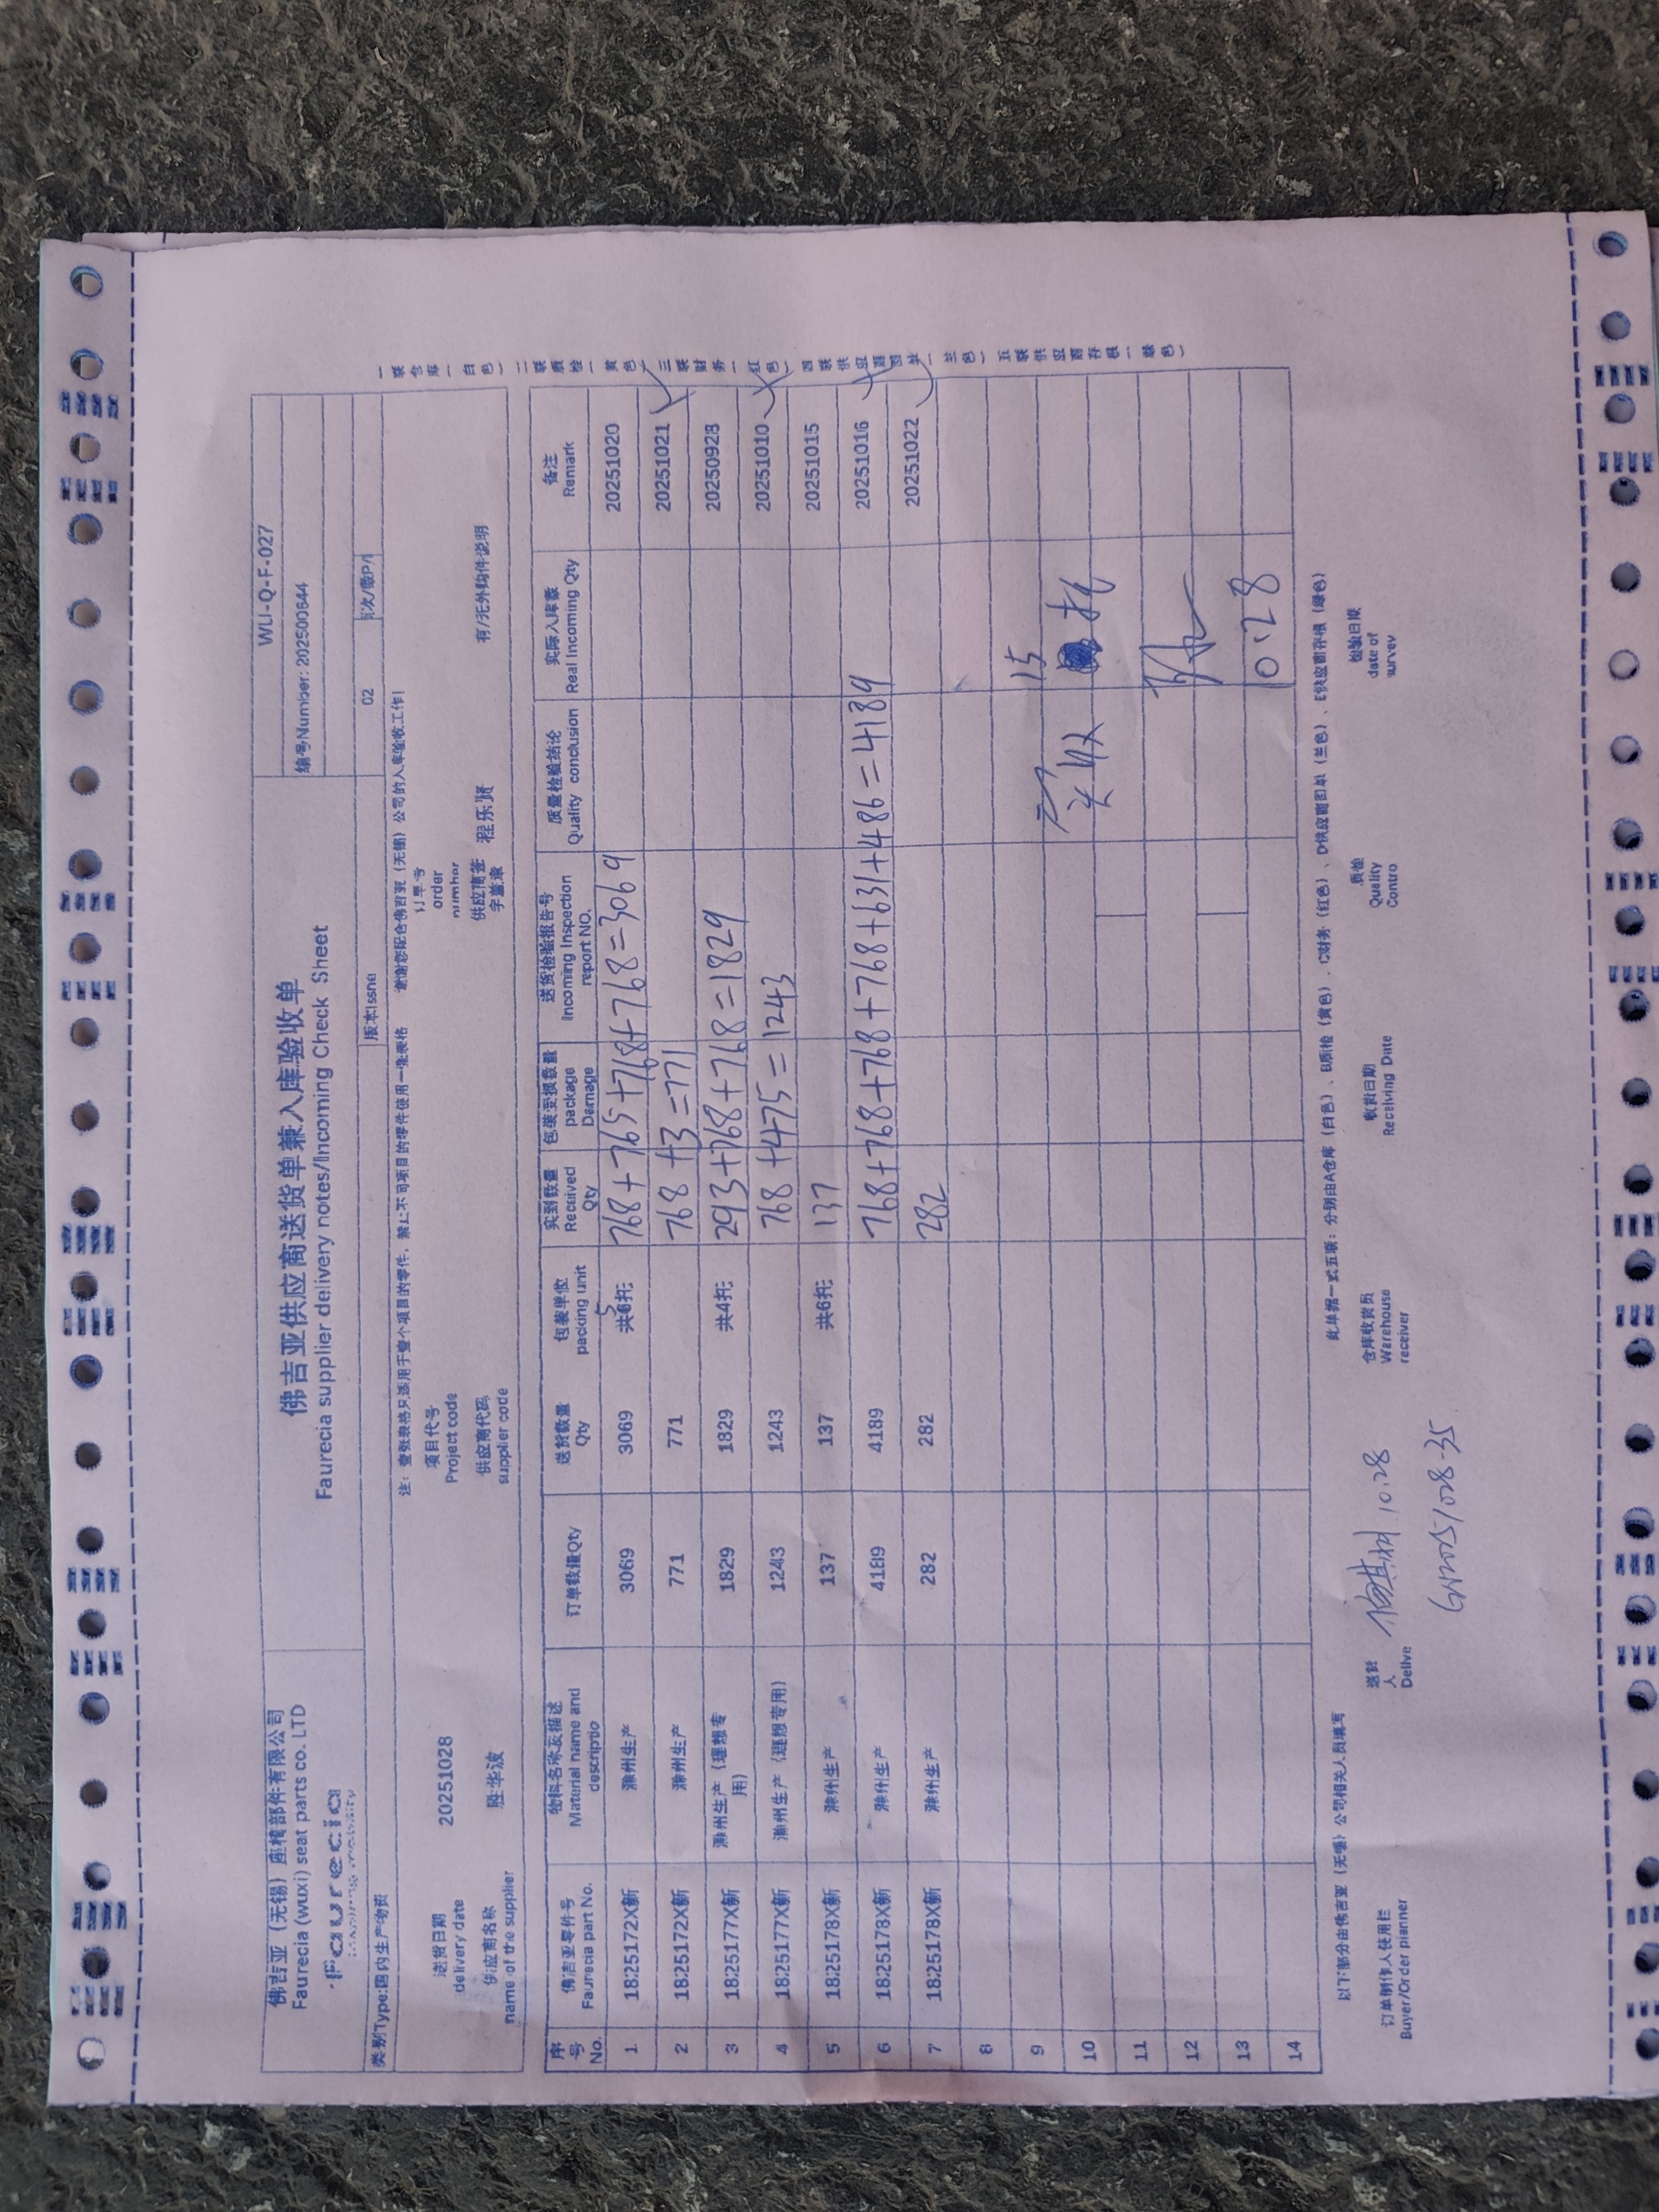 佛吉亚（无锡）座椅部件有限公司
Faurecia (wuxi) seat parts co. LTD
faurecia
佛吉亚供应商送货单兼入库验收单
Faurecia supplier delivery notes/Incoming Check Sheet
WLI-Q-F-027
编号Number: 202500644
类别Type:国内生产物资
版本Issne
02
页次/偬P/1
注：壹张表格只适用于壹个项目的零件，禁止不同项目的零件使用一张表格 谢谢您配合佛吉亚（无锡）公司的入库验收工作!
送货日期
delivery date
20251028
项目代号
Project code
订单号
order
number
供应商名称
name of the supplier
胜华波
供应商代码
supplier code
供应商签
字盖章
程乐贤
有/无外购件说明
序号 No. 佛吉亚零件号 Faurecia part No. 物料名称及描述 Material name and descriptio 订单数量Qty 送货数量 Qty 包装单位 packing unit 实到数量 Received Qty 包装受损数量 package Damage 送货检验报告号 Incoming Inspection report NO. 质量检验结论 Quality conclusion 实际入库数 Real Incoming Qty 备注 Remark
1 1825172X新 滁州生产 3069 3069 共6托 5 768+765+768+768=3069 20251020
2 1825172X新 滁州生产 771 771 768+3=771 20251021
3 1825177X新 滁州生产（理想专用） 1829 1829 共4托 293+768+768=1829 20250928
4 1825177X新 滁州生产（理想专用） 1243 1243 768+475=1243 20251010
5 1825178X新 滁州生产 137 137 共6托 137 20251015
6 1825178X新 滁州生产 4189 4189 768+768+768+768+631+486=4189 20251016
7 1825178X新 滁州生产 282 282 282 20251022
8
9 15
10 托
11
12
13 10.28
14
一联仓库（白色）二联质检（黄色）三联财务（红色）四联供应商回单（兰色）五联供应商存根（绿色）
以下部分由佛吉亚（无锡）公司相关人员填写
此单据一式五联：分别由A仓库（白色）、B质检（黄色）、C财务（红色）、D供应商回单（兰色）、E供应商存根（绿色）
订单制作人使用栏
Buyer/Order planner
送货
人
Delive
10.28
仓库收货员
Warehouse
receiver
收货日期
Receiving Date
质检
Quality
Contro
检验日期
date of
survey
GN2051028-35